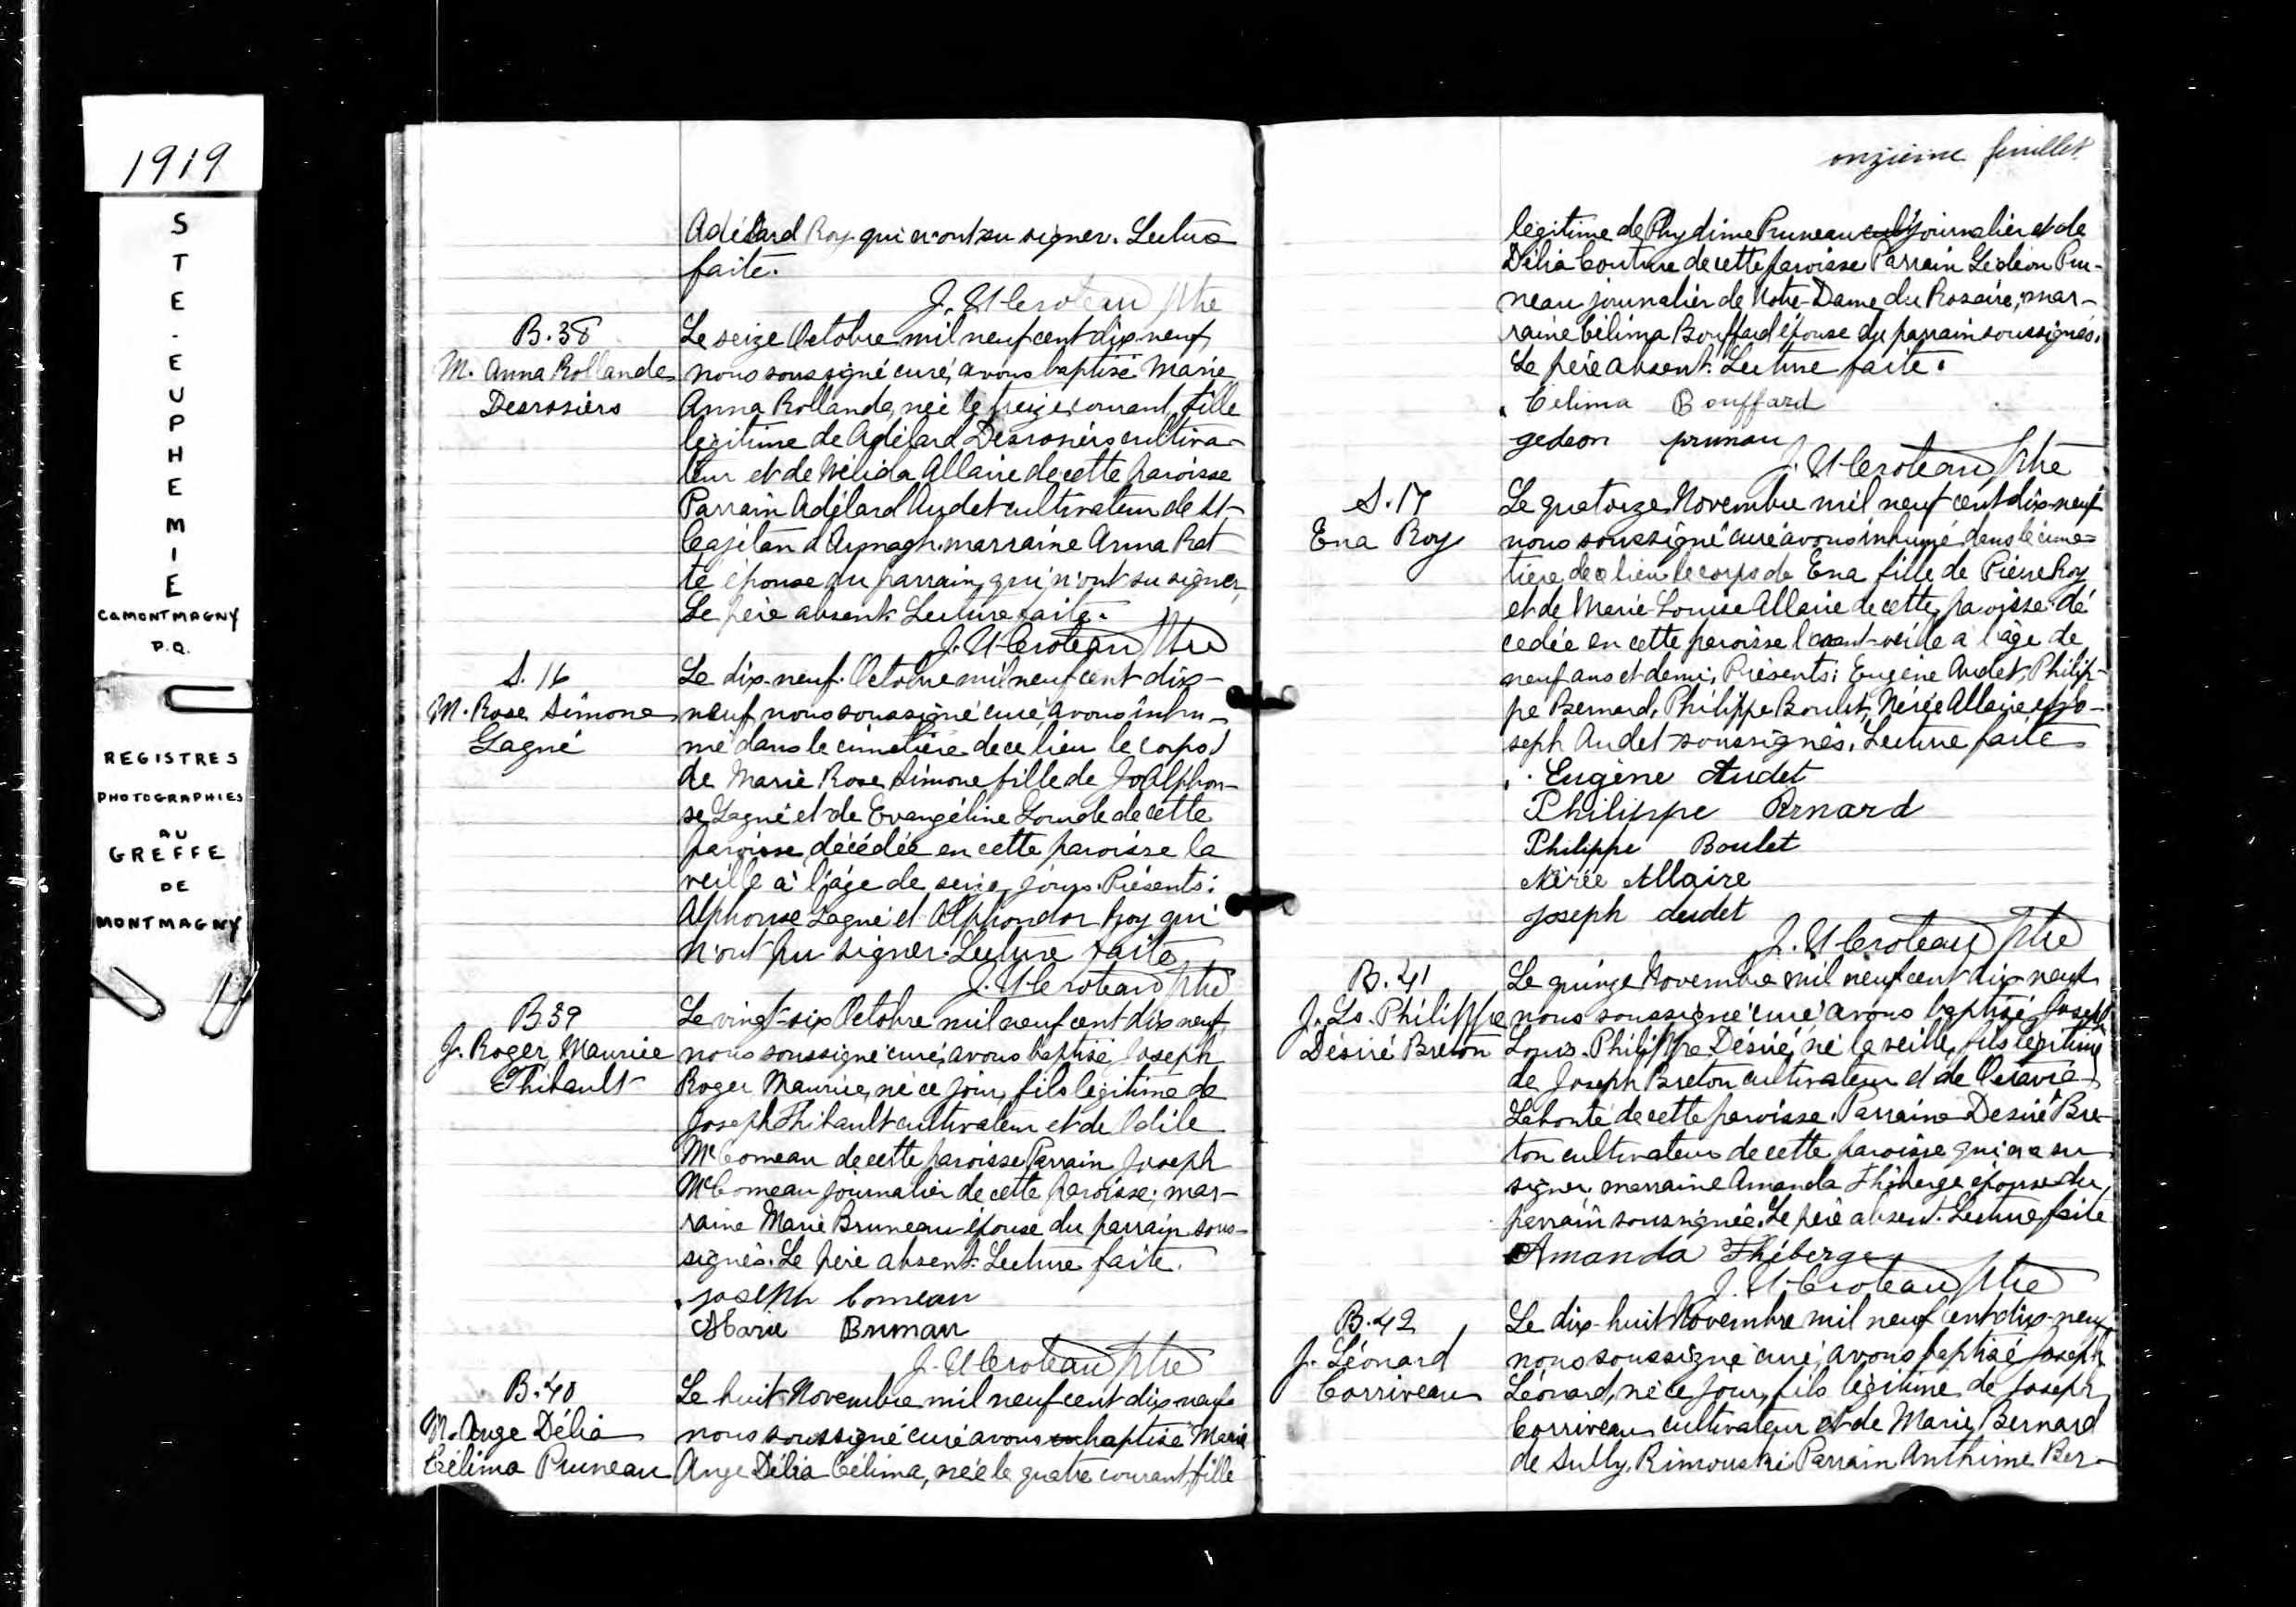 1919
STE-EUPHEMIE
Co MONTMAGNY
P.Q.
REGISTRES
PHOTOGRAPHIES
AU
GREFFE
DE
MONTMAGNY
Adélard Roy qui n'ont su signer. Lecture
faite.
J. U Croteau Ptre
B.38
M. Anna Rollande
Desrosiers
Le seize Octobre mil neuf cent dix-neuf,
nous soussigné curé, avons baptisé Marie
Anna Rollande, née le treize courant, fille
légitime de Adélard Desrosiers cultiva-
teur et de Mélida Allaire de cette paroisse
Parrain Adélard Audet cultivateur de St-
Cajétan d'Armagh. marraine Anna Rat
té épouse du parrain, qui n'ont su signer,
Le père absent. Lecture faite.
J. U Croteau Ptre
S. 16
M. Rose Simone
Gagné
Le dix-neuf Octobre mil neuf cent dix-
neuf, nous soussigné curé, avons inhu-
mé dans le cimetière de ce lieu le corps
de Marie Rose Simone fille de Jos Alphon-
se Gagné et de Evangéline de cette
paroisse, décédée en cette paroisse la
veille à l'âge de seize jours. Présents:
Alphonse Gagné et Alphondor Roy qui
n'ont pu signer. Lecture faite
J. U Croteau Ptre
B.39
J. Roger Maurice
Thibault
Le vingt-six Octobre mil neuf cent dix neuf,
nous soussigné curé, avons baptisé Joseph
Roger Maurice, né ce jour, fils légitime de
Joseph Thibault cultivateur et de Odile
McComeau de cette paroisse Parrain Joseph
McComeau journalier de cette paroisse; mar-
raine Marie Bruneau épouse du parrain sous-
signés. Le père absent. Lecture faite.
Joseph Comeau
Marie Brunau
J. U Croteau Ptre
B.40
M. Ange Délia
Célima Pruneau
Le huit Novembre mil neuf cent dix-neuf
nous soussigné curé avons baptisé Marie
Ange Délia Célima, née le quatre courant, fille
onzième feuillet.
légitime de Phydime Pruneau journalier et de
Délia Couture de cette paroisse Parrain Gédéon Pru-
neau journalier de Notre-Dame du Rosaire; mar-
raine Célima Bouffard épouse du parrain soussignés.
Le père absent. Lecture faite.
Célima Bouffard
gedeon prunau
J. U Croteau Ptre
S. 17
Ena Roy
Le quatorze Novembre mil neuf cent dix-neuf
nous soussigné curé avons inhumé dans le cime-
tière de ce lieu le corps de Ena fille de Pierre Roy
et de Marie Louise Allaire de cette paroisse dé
cédée en cette paroisse l'avant-veille à l'âge de
neuf ans et demi, Présents: Eugène Audet, Philip-
pe Bernard, Philippe Boulet, Nérée Allaire et Jo-
seph Audet soussignés. Lecture faite
Eugène Audet
Philippe Bernard
Philippe Boulet
Nérée Allaire
Joseph Audet
J. U Croteau Ptre
B. 41
J. Ls. Philippe
Désiré Breton
Le quinze Novembre mil neuf cent dix-neuf
nous soussigné curé avons baptisé Joseph
Louis-Philippe Désiré, né la veille, fils légitime
de Joseph Breton cultivateur et de Octavie
Labonté de cette paroisse. Parraine Désiré Bre-
ton cultivateur de cette paroisse qui n'a su
signer; marraine Amanda Théberge épouse du
parrain soussignée. Le père absent. Lecture faite
Amanda Théberge
J. U Croteau Ptre
B.42
J. Léonard
Corriveau
Le dix-huit Novembre mil neuf cent dix-neuf
nous soussigné curé, avons baptisé Joseph
Léonard, né ce jour, fils légitime de Joseph
Corriveau cultivateur et de Marie Bernard
de Sully, Rimouski Parrain Anthime Ber-